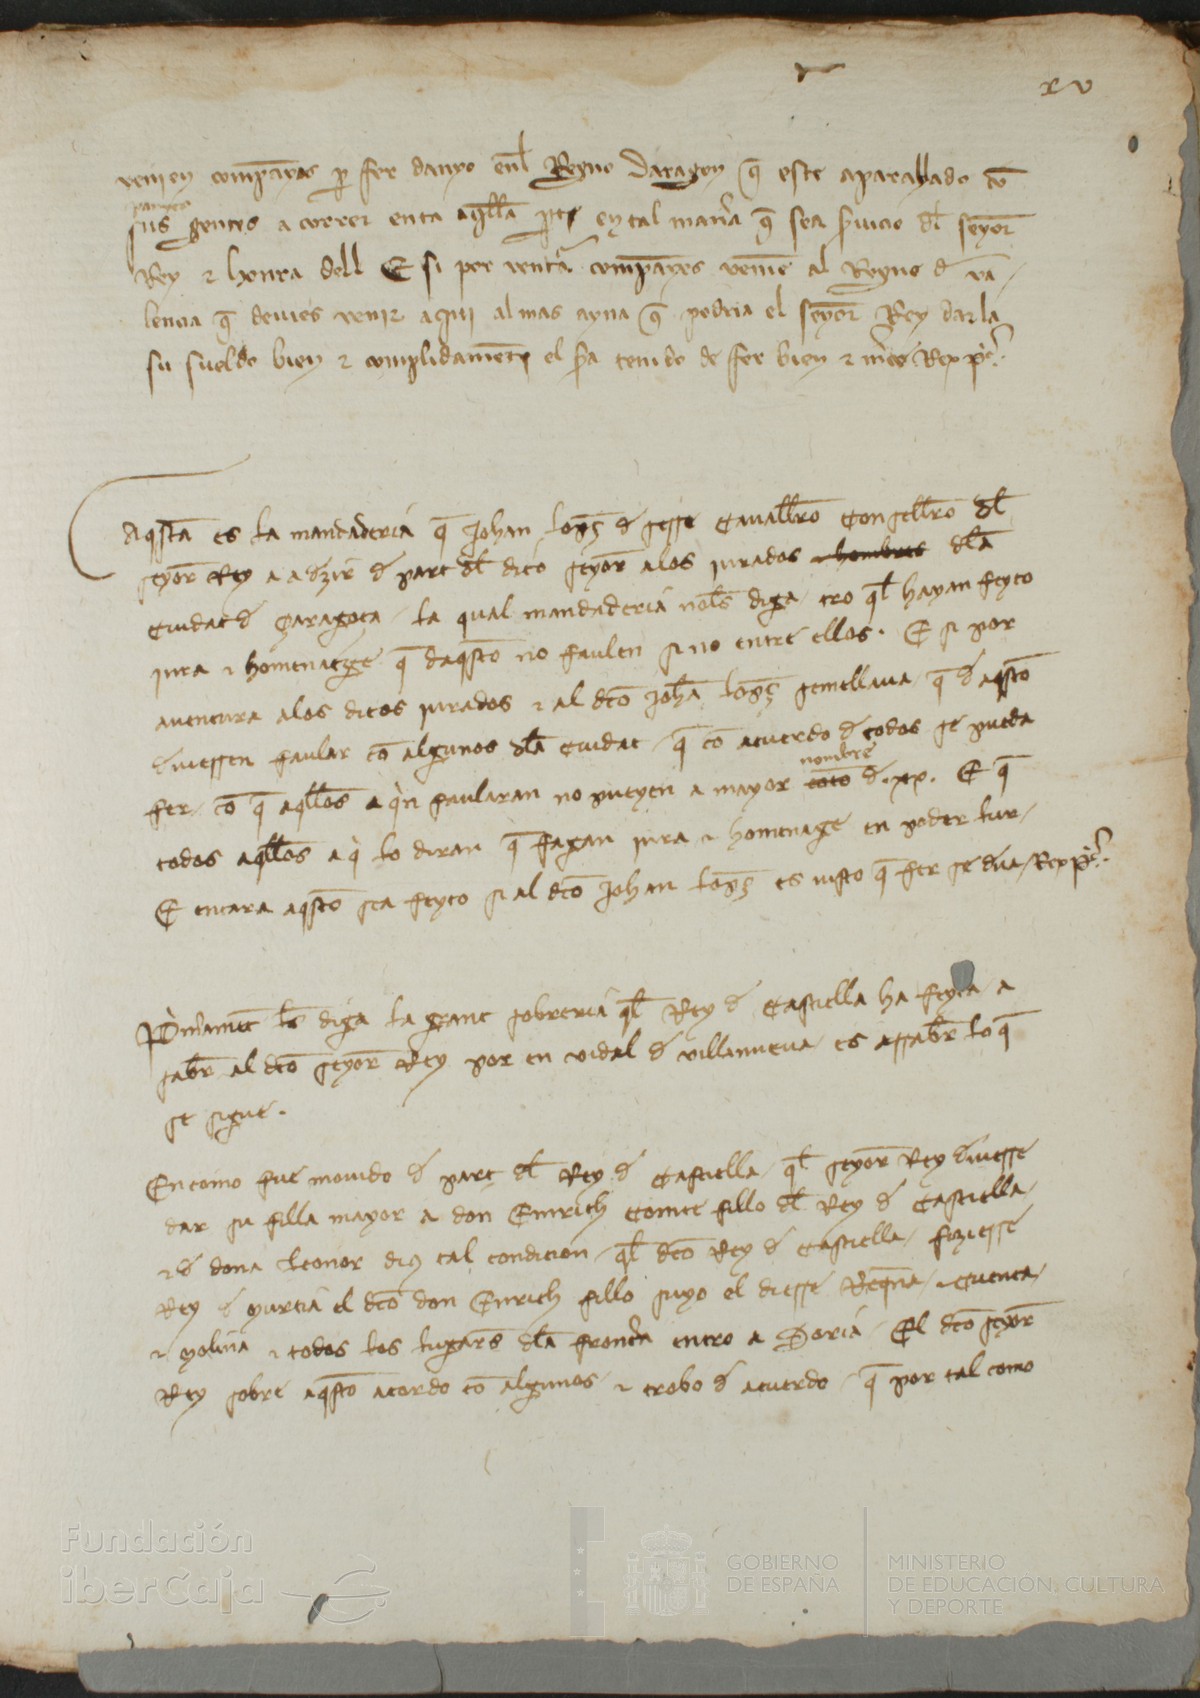 xv
venien companyas per fer danyo enl Regno Daragon que este aparallado con
sus gentes a correr enta aquella part en tal manera que sea servicio del senyor
Rey e honra dell E si per ventura companyes venien al Regno de Va
lencia que devies venir aqui al mas ayna que podria el senyor Rey dar la
su sueldo bien e complidament el sera tenido de fer bien e merce Rex P.
Aquesta es la mandaderia que Johan Lopeç de Sesse Cavallero Consellero del
senyor Rey a a dezir de part del dito senyor a los jurados e hombres dela
Ciudat de Çaragoça la qual mandaderia nols diga tro quel hayan feyto
jura e homenatge que daquesto no faulen sino entre ellos. E si por
aventura a los ditos jurados e al dito Johan Lopeç semellava que de aquesto
deviessen faular con algunos dela Ciudat que con acuerdo de todos se pueda
nombre
fer con que aquellos a qui en faularan no pueyen a mayor coto de .xx. E que
todos aquellos a qui lo diran que fagan jura e homenage en poder lur
E encara aquesto sea feyto si al dito Johan Lopeç es visto que fer se deva Rex P.
Primerament les diga la grant sobreria quel Rey de Castiella ha feyta a
saber al dito senyor Rey por en Vidal de Villanueva es assaber lo que
se sigue.
En como fue movido de part del Rey de Castiella quel senyor Rey deviesse
dar su filla mayor a don Enrich Comte fillo del Rey de Castiella
e de dona Leonor dius tal condicion quel dito Rey de Castiella fiziesse
Rey de Murcia el dito don Enrich fillo suyo el diesse Requena e Cuenca
e Molina e todos los lugares dela frontera entro a Soria El dito senyor
Rey sobre aquesto acordo con algunos e trobo de acuerdo que por tal como
Fundación
iberCaja
GOBIERNO
DE ESPAÑA
MINISTERIO
DE EDUCACIÓN, CULTURA
Y DEPORTE